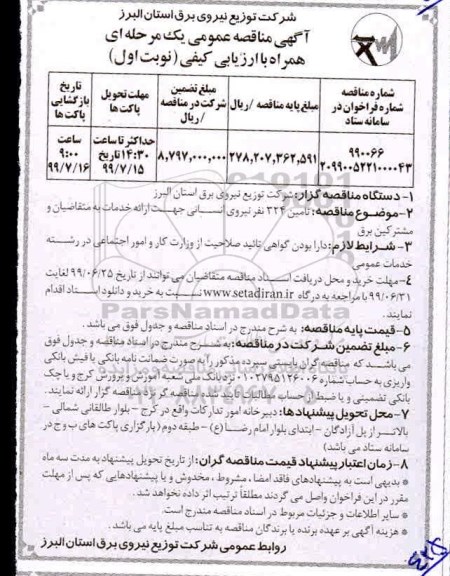 شرکت توزیع نیروی برق استان البرز
آگهی مناقصه عمومی یک مرحله ای
همراه با ارزیابی کیفی (نوبت اول)
شماره مناقصه
شماره فراخوان در
سامانه ستاد
مبلغ پایه مناقصه /ریال
مبلغ تضمین
شرکت در مناقصه
/ریال
مهلت تحویل
پاکت ها
تاریخ
بازگشایی
پاکت ها
۹۹۰۰۶۶
۲۰۹۹۰۰۵۲۲۱۰۰۰۰۴۳
۲۷۸,۲۰۷,۳۶۲,۵۹۱
۸,۷۹۷,۰۰۰,۰۰۰
حداکثر تا ساعت
۱۴:۳۰ تاریخ
۹۹/۷/۱۵
ساعت
۹:۰۰
۹۹/۷/۱۶
۱- دستگاه مناقصه گزار: شرکت توزیع نیروی برق استان البرز
۲-موضوع مناقصه: تامین ۳۲۴ نفر نیروی انسانی جهت ارائه خدمات به متقاضیان و
مشترکین برق
۳- شرایط لازم: دارا بودن گواهی تائید صلاحیت از وزارت کار و امور اجتماعی در رشته
خدمات عمومی
۴- مهلت خرید و محل دریافت اسناد مناقصه متقاضیان می توانند از تاریخ ۹۹/۰۶/۲۵ لغایت
۹۹/۰۶/۳۱ با مراجعه به درگاه www.setadiran.ir نسبت به خرید و دانلود اسناد اقدام
نمایند.
۵- قیمت پایه مناقصه: به شرح مندرج در اسناد مناقصه و جدول فوق می باشد.
۶- مبلغ تضمین شرکت در مناقصه: به شرح مندرج در اسناد مناقصه و جدول فوق
می باشد که مناقصه گران بایستی سپرده مذکور را به صورت ضمانت نامه بانکی یا فیش بانکی
واریزی به حساب شماره ۰۱۰۲۷۹۵۱۲۶۰۰۶ نزد بانک ملی شعبه آموزش و پرورش کرج و یا چک
بانکی تضمینی و یا ضبط از حساب مطالباتی تائید شده مناقصه گر نزد مناقصه گزار ارائه نمایند.
۷- محل تحویل پیشنهادها: دبیرخانه امور تدارکات واقع در کرج – بلوار طالقانی شمالی –
بالاتر از پل آزادگان – ابتدای بلوار امام رضا (ع) – طبقه دوم (بارگزاری پاکت های ب و ج در
سامانه ستاد می باشد)
۸- زمان اعتبار پیشنهاد قیمت مناقصه گران: از تاریخ تحویل پیشنهاد به مدت سه ماه
* بدیهی است به پیشنهادهای فاقد امضاء، مشروط، مخدوش و یا پیشنهادهایی که پس از مهلت
مقرر در این فراخوان واصل می گردند مطلقاً ترتیب اثر داده نخواهد شد.
* سایر اطلاعات و جزئیات مربوط در اسناد مناقصه مندرج است.
* هزینه آگهی بر عهده برنده یا برندگان مناقصه به تناسب مبلغ پایه می باشد.
روابط عمومی شرکت توزیع نیروی برق استان البرز
ParsNamadData